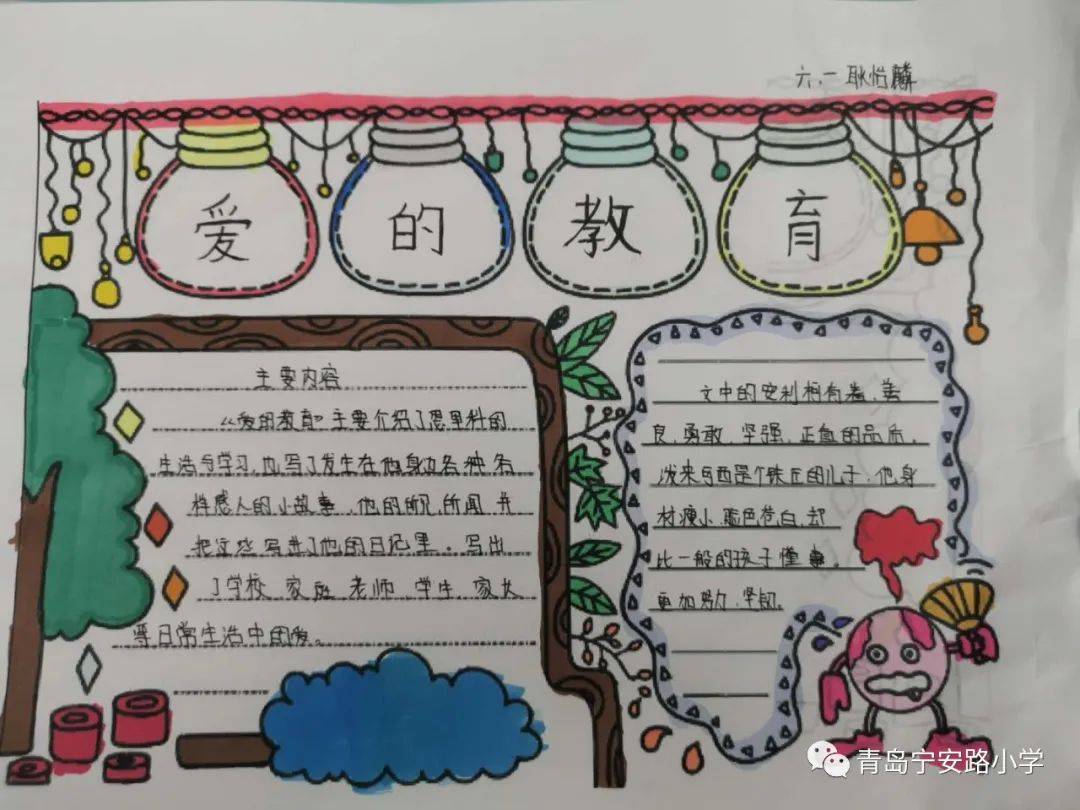 六.一 耿怡麟
爱的教育
主要内容
《爱的教育》主要介绍了恩里科的
生活与学习,也写了发生在他身边各种各
样感人的小故事,他的所见所闻,并
把这些写进了他的日记里。写出
了学校 家庭 老师 学生 家长
等日常生活中的爱。
文中的安利柯有着,善
良,勇敢,坚强,正直的品质,
泼来与西是个铁匠的儿子,他身
材瘦小,脸色苍白,却
比一般的孩子懂事。
更加努力,坚韧。
青岛宁安路小学